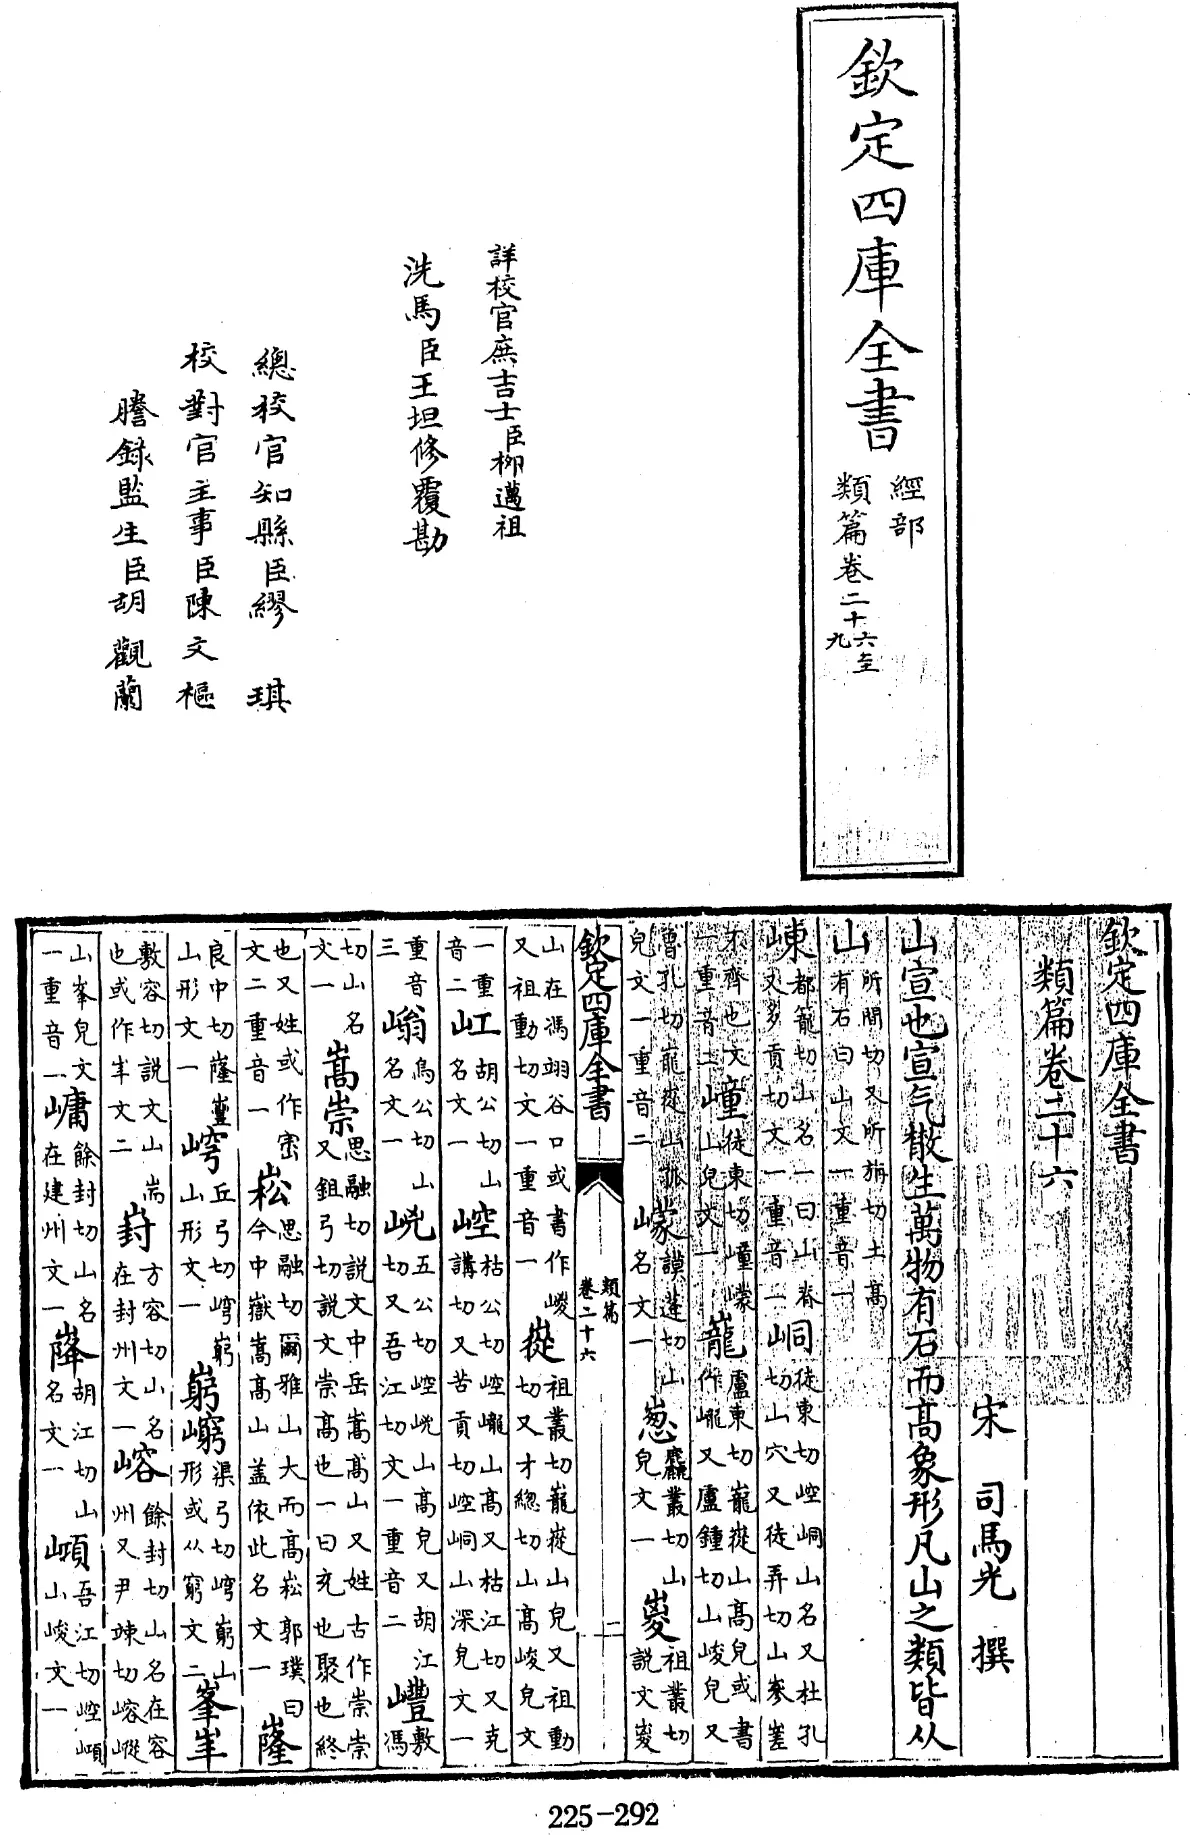 欽定四庫全書
經部
類篇卷二十六至
九
詳校官庶吉士臣柳邁祖
洗馬臣王坦修覆勘
總校官知縣臣繆琪
校對官主事臣陳文樞
謄錄監生臣胡觀蘭
欽定四庫全書
類篇卷二十六
宋 司馬光 撰
山宣也宣气散生萬物有石而高象形凡山之類皆从
山所間切又所旃切土高
有石曰山文一重音一
崠都籠切山名一曰山脊
又多貢切文一重音一
峒徒東切崆峒山名又杜孔
切山穴又徒弄切山參差
不齊也文
一重音二
㠉徒東切㠉㠓
山皃文一
巃盧東切巃嵸山高皃或書
作巄又盧鍾切山峻皃又
魯孔切巃嵸山孤
皃文一重音二
㠓謨蓬切山
名文一
䓗麤叢切山
皃文一
嵏祖叢切
説文嵏
欽定四庫全書
類篇
卷二十六
二
山在馮翊谷口或書作嵕
又祖動切文一重音一
嵸祖叢切巃嵸山皃又祖動
切又才緫切山高峻皃文
一重
音二
屸胡公切山
名文一
崆枯公切崆巄山高又枯江切又克
講切又苦貢切崆峒山深皃文一
重音
三
嵡烏公切山
名文一
㟅五公切崆㟅山高皃又胡江
切又吾江切文一重音二
㠦敷
馮
切山名
文一
嵩崇思融切説文中岳嵩高山又姓古作崇崇
又鉏弓切説文崇高也一曰充也聚也終
也又姓或作密
文二重音一
崧思融切爾雅山大而高崧郭璞曰
今中嶽嵩高山蓋依此名文一
㠥
良中切㠥嵏
山形文一
㟝丘弓切㟝竆
山形文一
嵏渠弓切㟝竆山
形或从窮文二
峯峯
敷容切説文山耑
也或作峯文二
崶方容切山名
在封州文一
嵱餘封切山名在容
州又尹竦切嵱嵷
山峯皃文
一重音一
㟾餘封切山名
在建州文一
㟩胡江切山
名文一
㟴吾江切崆㟴
山峻文一
225-292